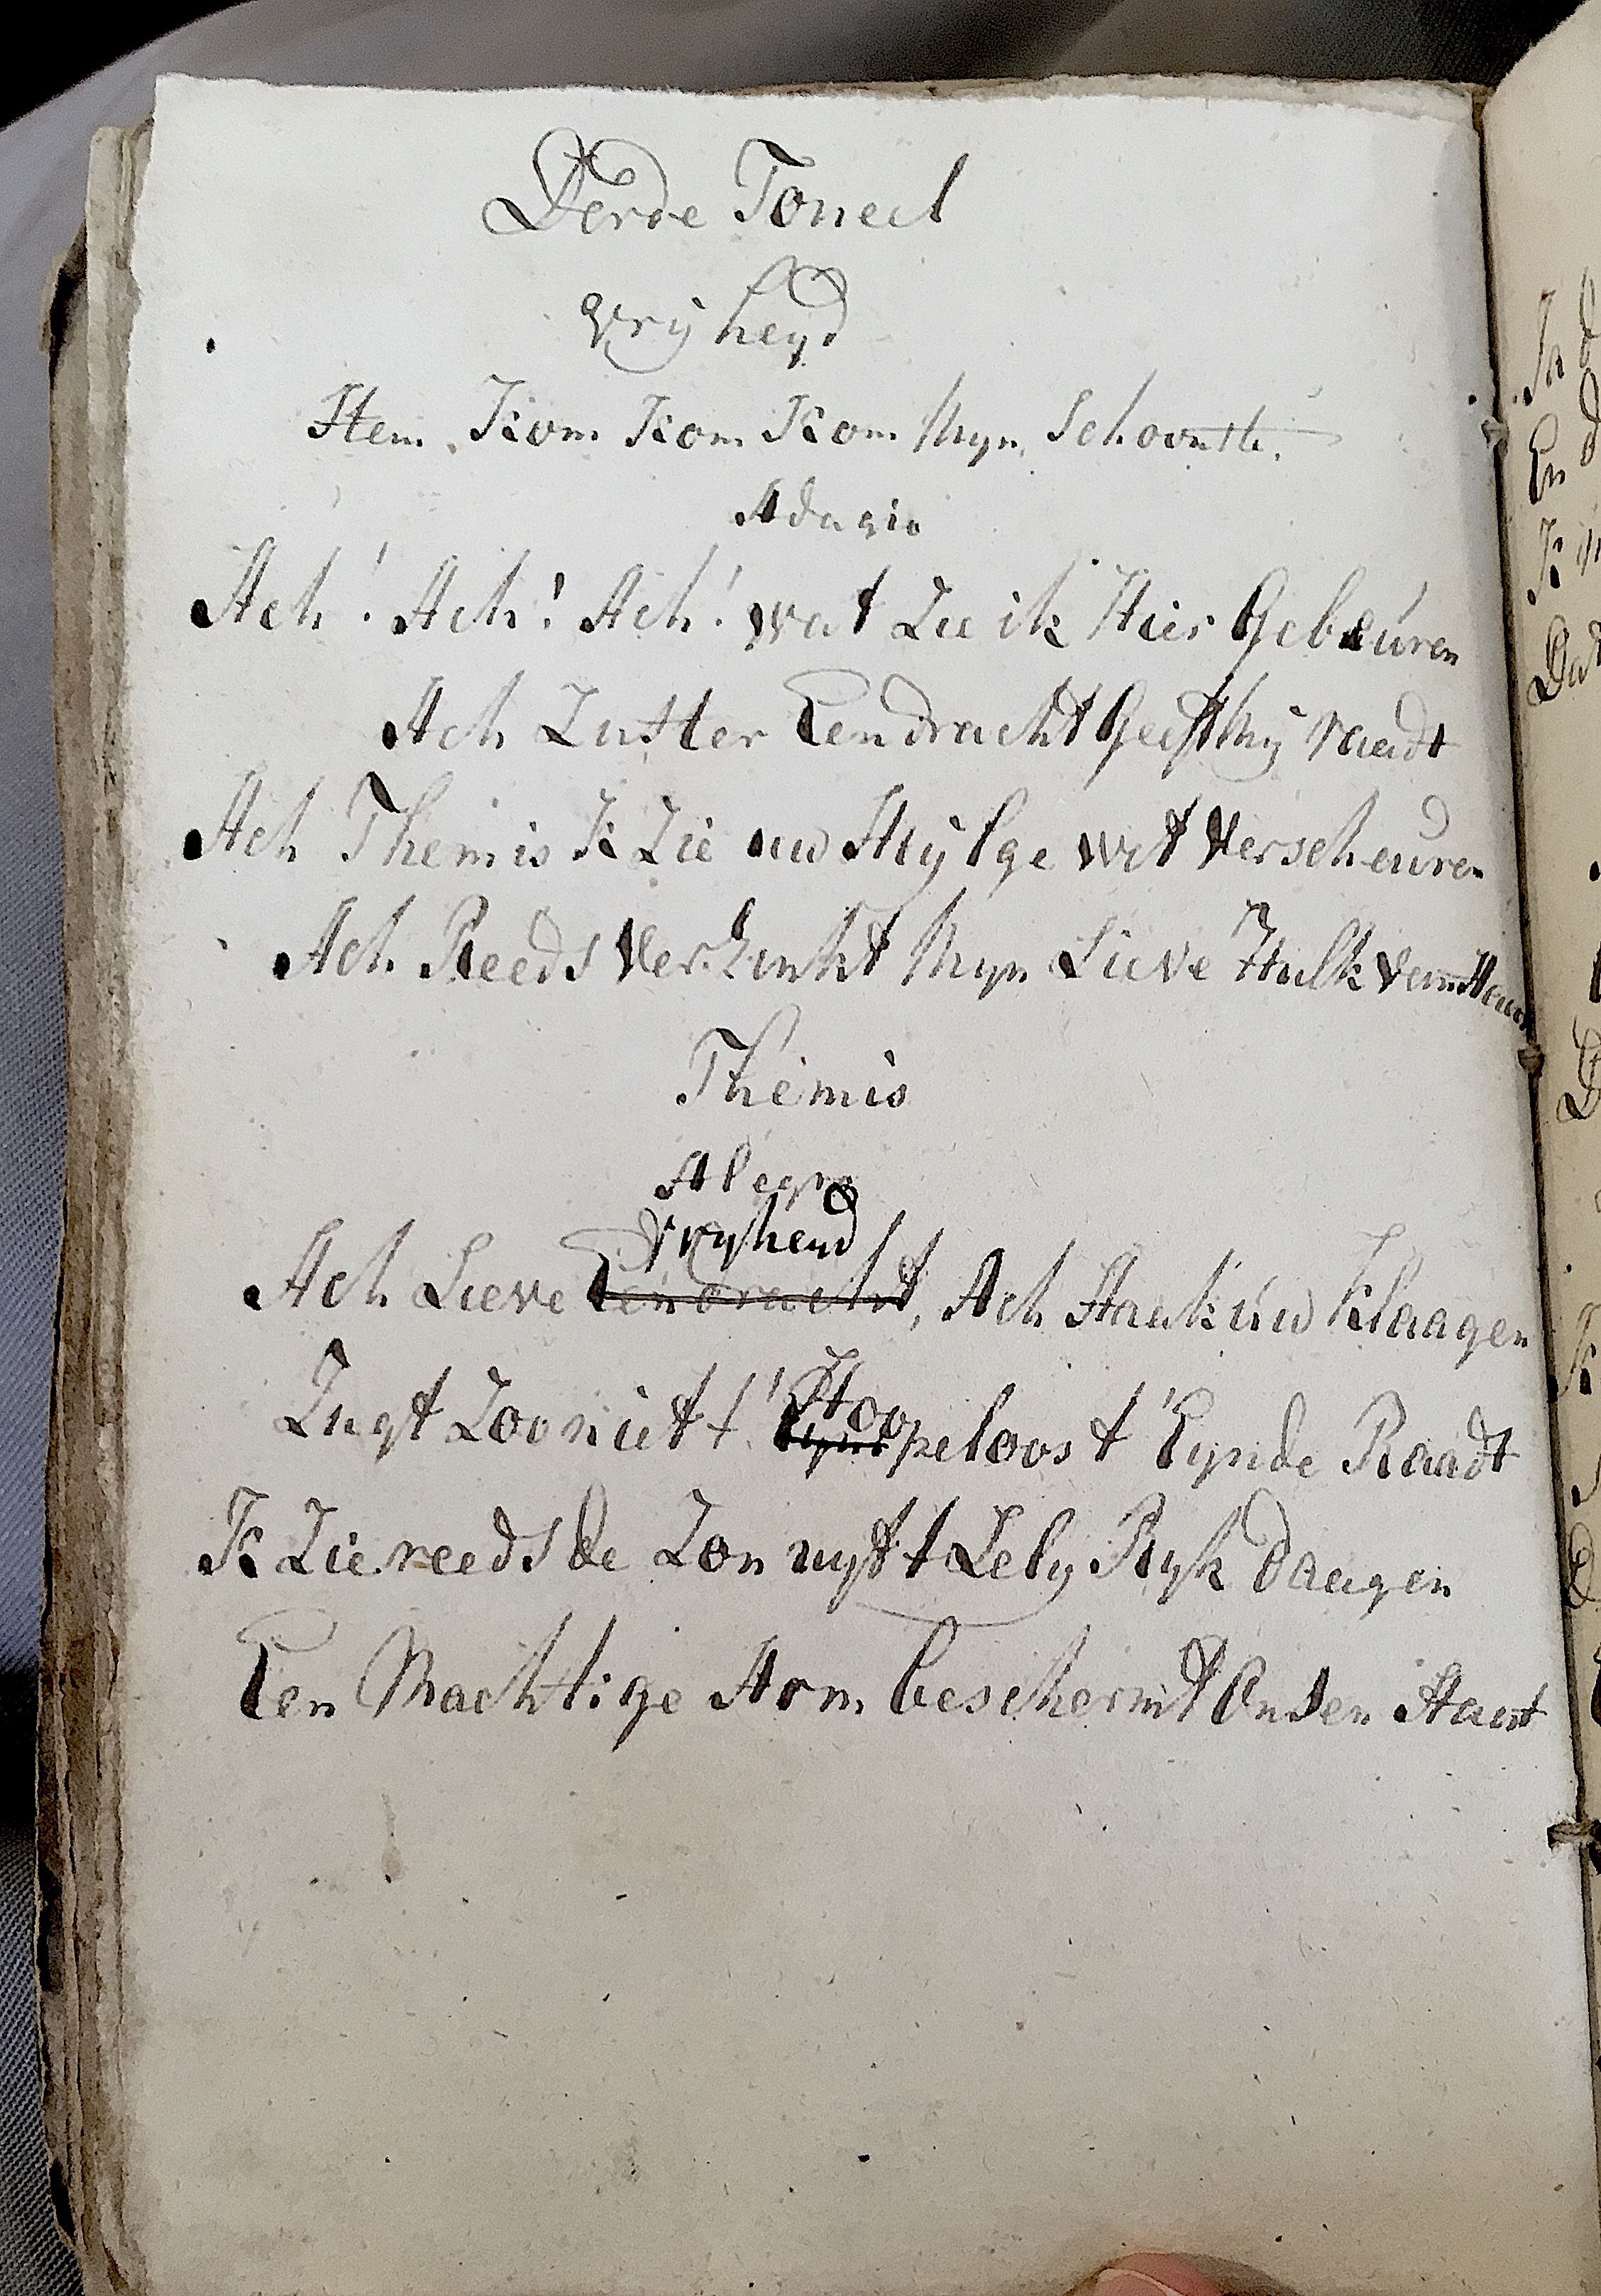 Derde Toneel
Vryheyd
Stem Kom Kom Kom Myn Schoonste.
Adagio
Ach! Ach! Ach! wat Zie ik Hier Gebeuren
Ach Zuster Eendracht Geeft My Raadt
Ach Themis K Zie uw Hylge wet Verscheuren
Ach Reeds Verzinkt Myn Lieve Hulk
Themis
Alegro
Vryheyd
Ach Lieve Eendracht, Ach Staak uw Klaagen
Hoo
Zugt Zoo niet t' peloos t' Eynde Raadt
K Zie reeds de Zon uyt t Lely Ryk daagen
Een Machtige Arm beschermt Onsen Staat
In d
En d
K
Dat